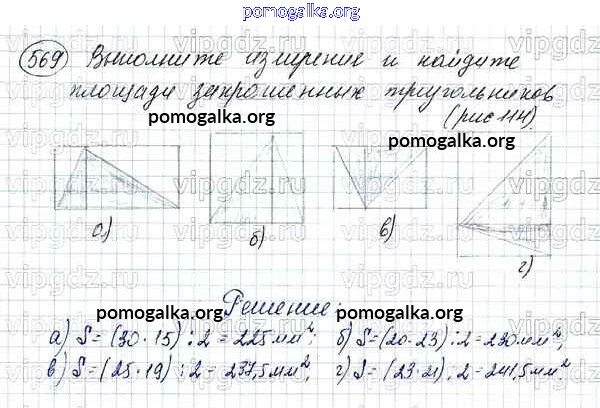 pomogalka.org
569 Выполните измерение и найдите
площади закрашенных треугольников
(рис 144).
pomogalka.org
pomogalka.org
а) б) в) г)
Решение:
pomogalka.org
а) S = (30·15) : 2 = 225 мм²; б) S = (20·23) : 2 = 230 мм²;
в) S = (25·19) : 2 = 237,5 мм²; г) S = (23·21) : 2 = 241,5 мм²
pomogalka.org